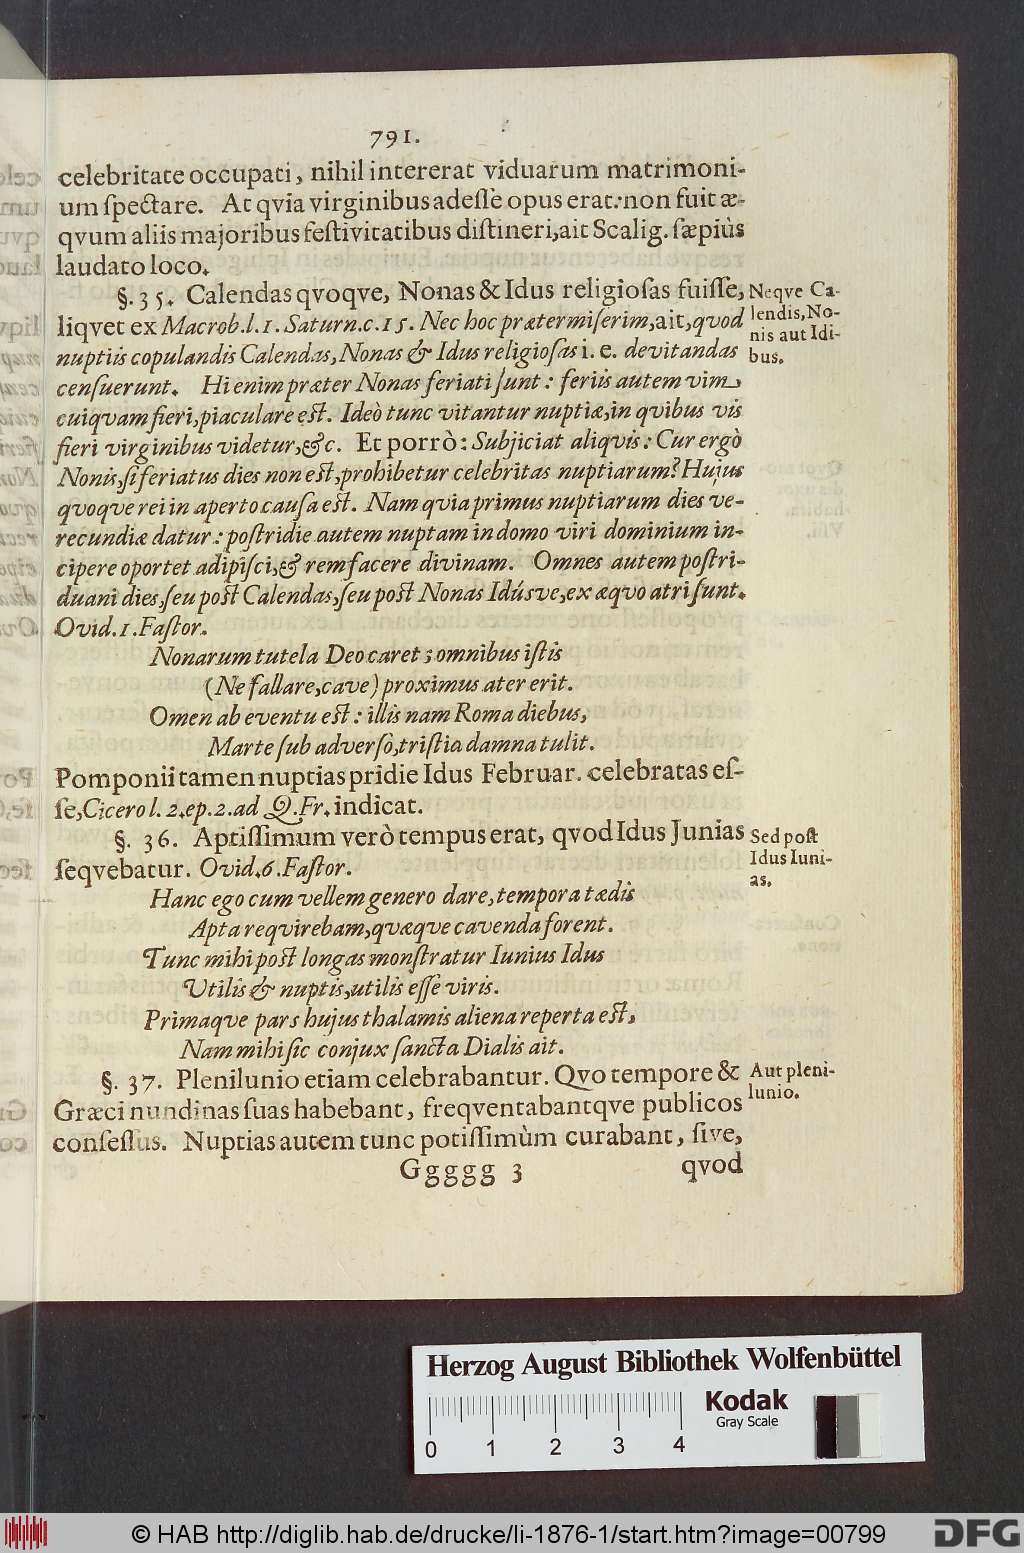 791.
celebritate occupati, nihil intererat viduarum matrimoni-
um ſpectare. At qvia virginibus adeſſe opus erat: non fuit æ-
qvum aliis majoribus feſtivitatibus diſtineri, ait Scalig. ſæpiùs
laudato loco.
§. 35. Calendas qvoqve, Nonas & Idus religioſas fuiſſe,
Neqve Ca-
lendis, No-
nis aut Idi-
bus.
liqvet ex Macrob. l. 1. Saturn. c. 15. Nec hoc prætermiſerim, ait, qvod
nuptiis copulandis Calendas, Nonas & Idus religioſas i. e. devitandas
cenſuerunt. Hi enim præter Nonas feriati ſunt: feriis autem vim
cuiquam fieri, piaculare eſt. Ideò tunc vitantur nuptiæ, in qvibus vis
fieri virginibus videtur, &c. Et porrò: Subjiciat aliqvis: Cur ergò
Nonis, ſi feriatus dies non eſt, prohibetur celebritas nuptiarum? Hujus
qvoqve rei in aperto cauſa eſt. Nam qvia primus nuptiarum dies ve-
recundiæ datur: poſtridie autem nuptam in domo viri dominium in-
cipere oportet adipiſci, & rem facere divinam. Omnes autem poſtri-
duani dies, ſeu poſt Calendas, ſeu poſt Nonas Idúsve, ex æqvo atri ſunt.
Ovid. 1. Faſtor.
Nonarum tutela Deo caret; omnibus iſtis
(Ne fallare, cave) proximus ater erit.
Omen ab eventu eſt: illis nam Roma diebus,
Marte ſub adverſò, triſtia damna tulit.
Pomponii tamen nuptias pridie Idus Februar. celebratas eſ-
ſe, Cicero l. 2. ep. 2. ad Q. Fr. indicat.
§. 36. Aptiſſimum verò tempus erat, qvod Idus Junias
Sed poſt
Idus Iuni-
as.
ſeqvebatur. Ovid. 6. Faſtor.
Hanc ego cum vellem genero dare, tempora tædis
Apta requirebam, qvæqve cavenda forent.
Tunc mihi poſt longas monſtratur Iunius Idus
Utilis & nuptis, utilis eſſe viris.
Primaqve pars hujus thalamis aliena reperta eſt,
Nam mihi ſic conjux ſancta Dialis ait.
§. 37. Plenilunio etiam celebrabantur. Qvo tempore &
Aut pleni-
lunio.
Græci nundinas ſuas habebant, freqventabantqve publicos
conſeſſus. Nuptias autem tunc potiſſimùm curabant, ſive,
Ggggg 3
qvod
Herzog August Bibliothek Wolfenbüttel
Kodak
Gray Scale
0 1 2 3 4
© HAB http://diglib.hab.de/drucke/li-1876-1/start.htm?image=00799
DFG